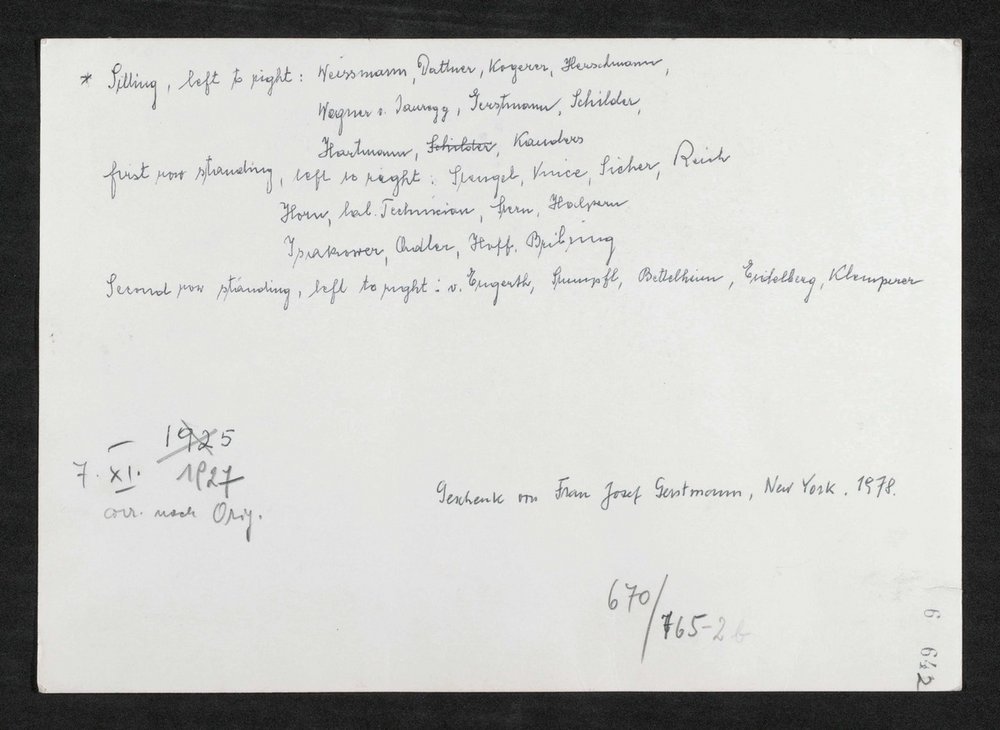 * Sitting, left to right: Weissmann, Dattner, Kogerer, Herschmann,
Wagner v. Jauregg, Gerstmann, Schilder,
Hartmann, Schilder, Kauders
first row standing, left to right: Stengel, Vince, Sicher, Reich
Horn, lab. Technician, Stern, Halpern
Isakower, Adler, Hoff,
Second row standing, left to right: v. Engerth, Stumpfl, Bettelheim, Eidelberg, Klemperer
1925
7. XI. 1927
corr. nach Orig.
Geschenk von Frau Josef Gerstmann, New York. 1978.
670/
765-2b
6 642